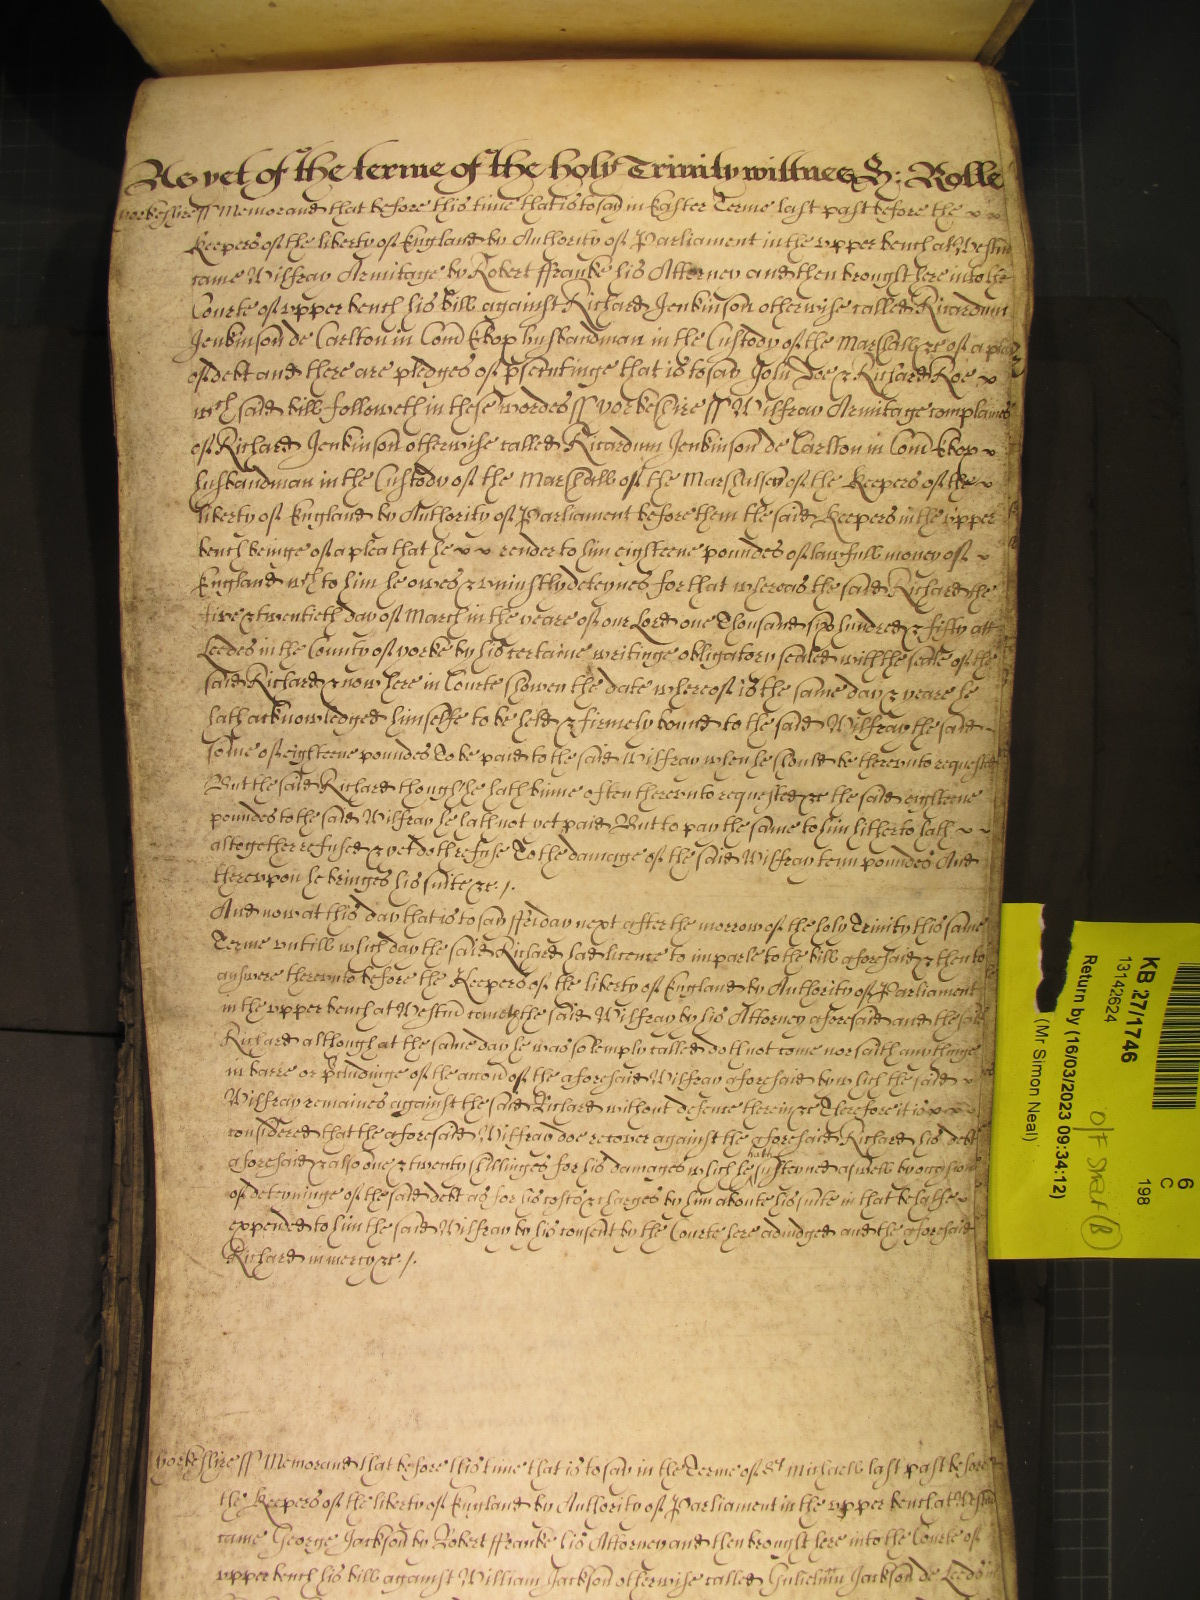 As yet of the terme of the holy Trinity wittnes H: Rolle
Yorkeshire ss Memorand that before this time that is to say in Easter Terme last past before the
Keepers of the liberty of England by Authority of Parliament in the upper bench at Westm
came Wilfray Armitage by Robert ffranke his Attorney and then brought here into the
Courte of upper bench his bill against Richard Jenkinson otherwise called Ricardum
Jenkinson de Carlton in Com Ebor husbandman in the Custody of the Marshall &c of a plea
of debt and there are pledges of psecutinge that is to say John Doe & Richard Roe
wch said bill followeth in these wordes ss Yorkeshire ss Wilfray Armitage complaines
of Richard Jenkinson otherwise called Ricardum Jenkinson de Carlton in Com Ebor
husbandman in the Custody of the Marshall of the Marshalsey of the Keepers of the
liberty of England by Authority of Parliament before them the said Keepers in the upper
bench beinge of a plea that he render to him eighteene poundes of lawfull money of
England wch to him he owes & uniustly deteynes for that whereas the said Richard the
five & twentieth day of March in the yeare of our Lord one thousand six hundred & fifty att
Leedes in the County of yorke by his certaine writinge obligatory sealed with the seale of the
said Richard & now here in Courte shewen the date whereof is the same day & yeare he
hath acknowledged himselfe to be held & firmely bound to the said Wilfray the said
some of eighteene poundes To be paid to the said Wilfray when he should be thereunto requested
But the said Richard though he hath binne often thereunto requested &c the said eighteene
poundes to the said Wilfray he hath not yet paid But to pay the same to him hitherto hath
altogether refused & yet doth refuse To the damage of the said Wilfray tenn poundes And
thereupon he bringes his suite &c. /.
And now at this day that is to say ffriday next after the morrow of the holy Trinity this same
Terme untill which day the said Richard had licence to imparle to the bill aforesaid & then to
answere thereunto before the Keepers of the liberty of England by Authority of Parliament
in the upper bench at Westm cometh the said Wilfray by his Attorney aforesaid and the said
Richard although at the same day he was solemply called doth not come nor saith any thinge
in barre or pcludinge of the accon of the aforesaid Wilfray aforesaid by which the said
Wilfray remaines against the said Richard without defence therein &c Therefore it is
considered that the aforesaid Wilfray doe recover against the aforesaid Richard his debt
aforesaid & also one & twenty shillinges for his damages which he hath susteyned aswell by occasion
of deteyninge of the said debt as for his costs & charges by him aboute his suite in that behalfe
expended to him the said Wilfray by his consent by the Courte here adiudged and the aforesaid
Richard in mercy &c. /.
Yorkeshire ss Memorand that before this time that is to say in the Terme of St Michaell last past before
the Keepers of the liberty of England by Authority of Parliament in the upper bench at Westm
came George Jackson by Robert ffranke his Attorney and then brought here into the Courte of
upper bench his bill against William Jackson otherwise called Gulielmu Jackson de Leedes
KB 27/1746
13142624
Return by (16/03/2023 09:34:12)
(Mr Simon Neal)
6
C
198
O/F Shelf (B)